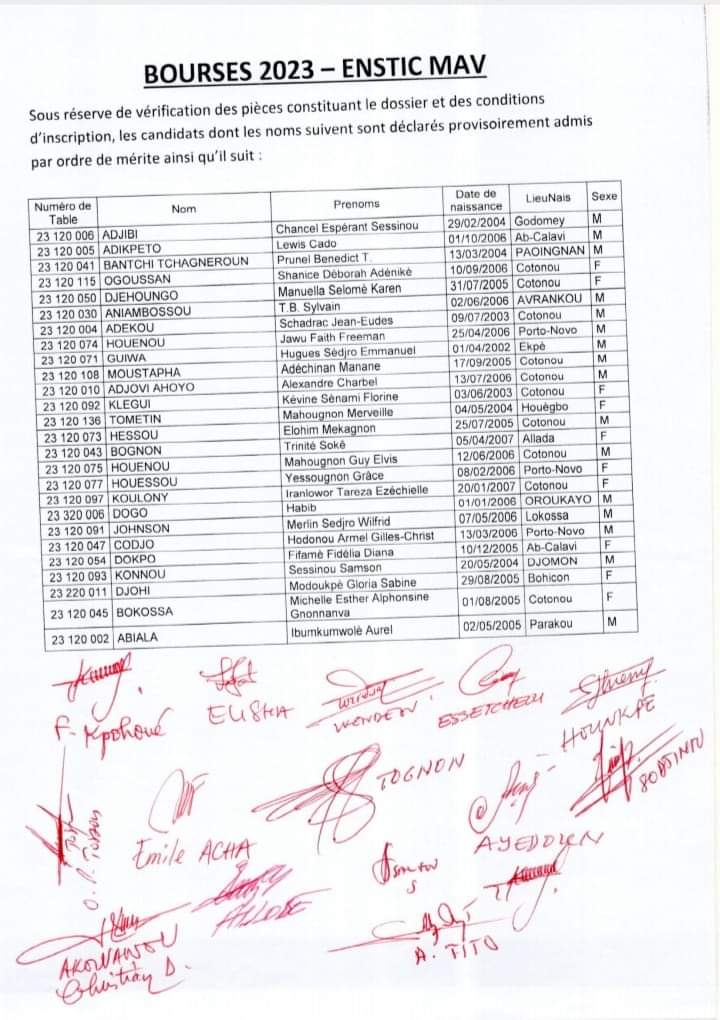 BOURSES 2023 – ENSTIC MAV
Sous réserve de vérification des pièces constituant le dossier et des conditions
d'inscription, les candidats dont les noms suivent sont déclarés provisoirement admis
par ordre de mérite ainsi qu'il suit :
Numéro de Table Nom Prenoms Date de naissance LieuNais Sexe
23 120 006 ADJIBI Chancel Espérant Sessinou 29/02/2004 Godomey M
23 120 005 ADIKPETO Lewis Cado 01/10/2006 Ab-Calavi M
23 120 041 BANTCHI TCHAGNEROUN Prunel Benedict T. 13/03/2004 PAOINGNAN M
23 120 115 OGOUSSAN Shanice Déborah Adéniké 10/09/2006 Cotonou F
23 120 050 DJEHOUNGO Manuella Selomè Karen 31/07/2005 Cotonou F
23 120 030 ANIAMBOSSOU T.B. Sylvain 02/06/2006 AVRANKOU M
23 120 004 ADEKOU Schadrac Jean-Eudes 09/07/2003 Cotonou M
23 120 074 HOUENOU Jawu Faith Freeman 25/04/2006 Porto-Novo M
23 120 071 GUIWA Hugues Sèdjro Emmanuel 01/04/2002 Ekpè M
23 120 108 MOUSTAPHA Adéchinan Manane 17/09/2005 Cotonou M
23 120 010 ADJOVI AHOYO Alexandre Charbel 13/07/2006 Cotonou M
23 120 092 KLEGUI Kévine Sènami Florine 03/06/2003 Cotonou F
23 120 136 TOMETIN Mahougnon Merveille 04/05/2004 Houègbo F
23 120 073 HESSOU Elohim Mekagnon 25/07/2005 Cotonou M
23 120 043 BOGNON Trinité Sokê 05/04/2007 Allada F
23 120 075 HOUENOU Mahougnon Guy Elvis 12/06/2006 Cotonou M
23 120 077 HOUESSOU Yessougnon Grâce 08/02/2006 Porto-Novo F
23 120 097 KOULONY Iranlowor Tareza Ezéchielle 20/01/2007 Cotonou F
23 320 006 DOGO Habib 01/01/2006 OROUKAYO M
23 120 091 JOHNSON Merlin Sedjro Wilfrid 07/05/2006 Lokossa M
23 120 047 CODJO Hodonou Armel Gilles-Christ 13/03/2006 Porto-Novo M
23 120 054 DOKPO Fifamè Fidélia Diana 10/12/2005 Ab-Calavi F
23 120 093 KONNOU Sessinou Samson 20/05/2004 DJOMON M
23 220 011 DJOHI Modoukpè Gloria Sabine 29/08/2005 Bohicon F
23 120 045 BOKOSSA Michelle Esther Alphonsine Gnonnanva 01/08/2005 Cotonou F
23 120 002 ABIALA Ibumkumwolè Aurel 02/05/2005 Parakou M
F. Kpohoué
ELISHA
ESSETCHEDJI
HOUNKPE
TOGNON
SODJINOU
Emile ACHA
AYEDOUN
AKOWANOU
Christian D.
A. TITO